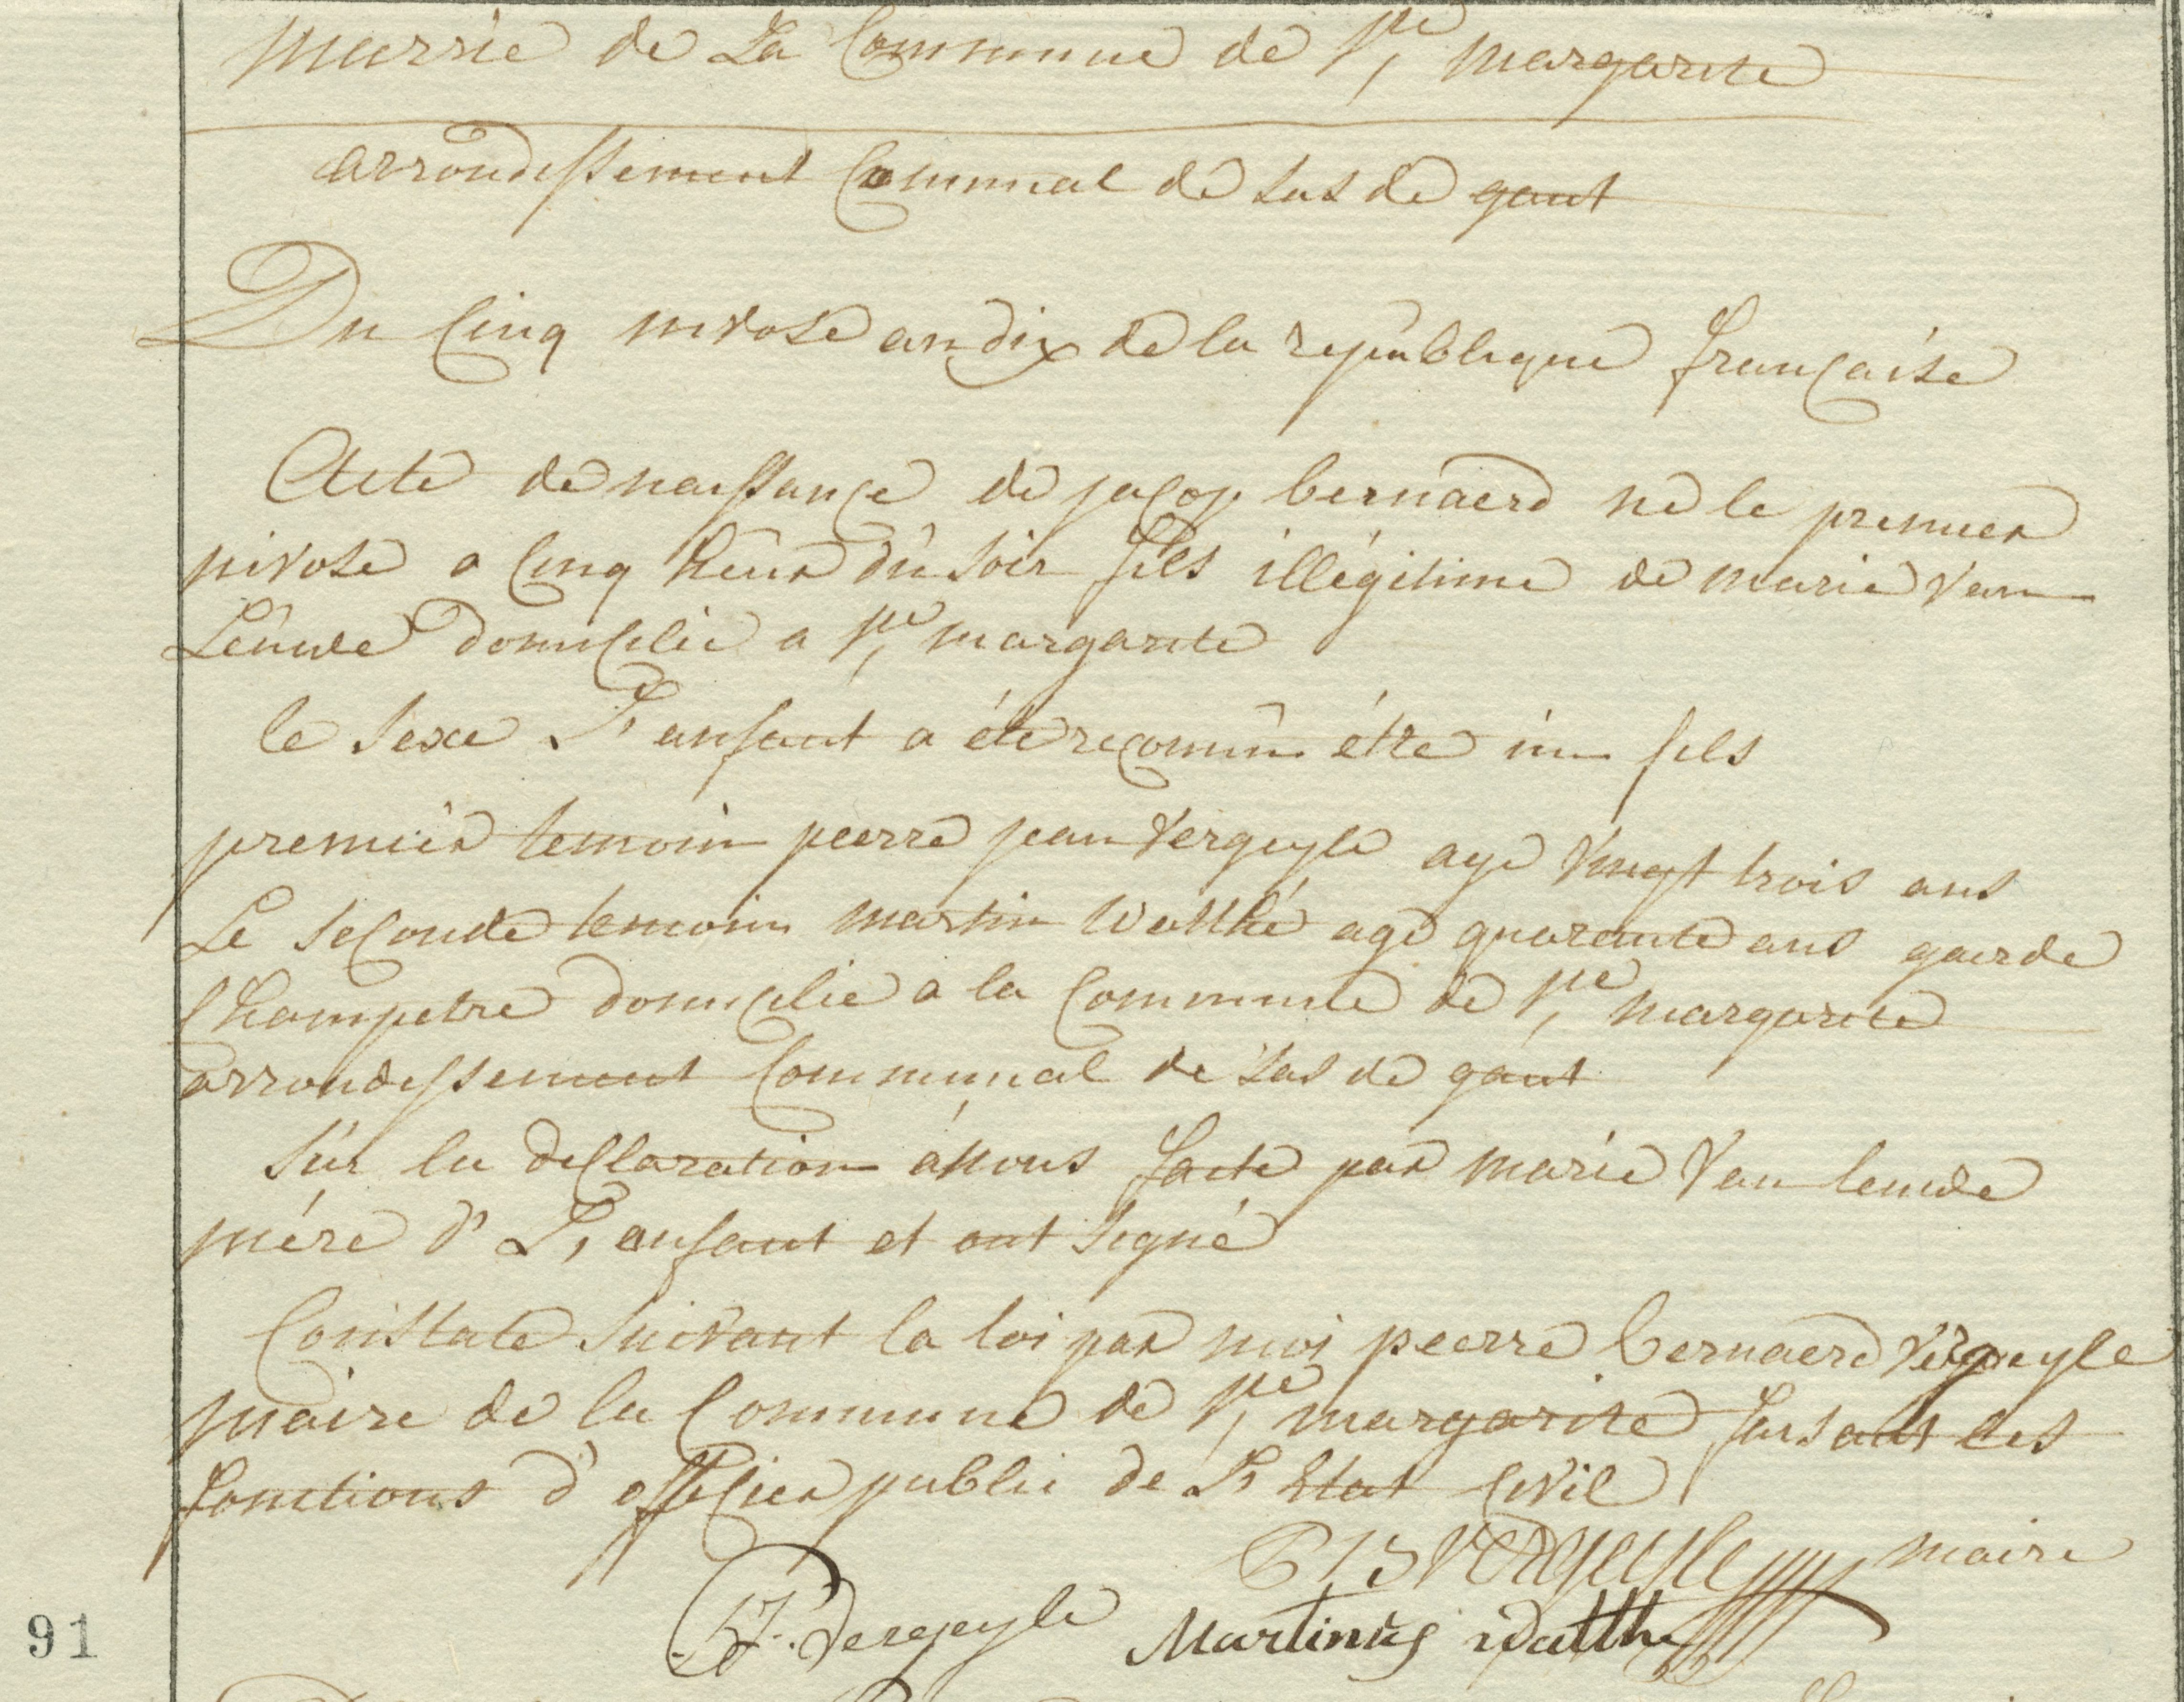 Mairie de La Commune de Ste, margarite
arrondissement Communal de Sas de gant
Du Cinq nivose an dix de la republique française
Acte de naissance de jacop bernaerd né le premier
nivose a Cinq heur du soir fils illégitime de marie van
Leúwe domicilié a Ste, margarite
le Sexe L'enfant a éte reconnu étre un fils
premier temoin peerre jean Vergeyle agé vingt trois ans
Le Seconde temoin martin Watthé agé quarante ans garde
Champetre domicilié a la Commune de Ste, margarite
arrondissement Communal de Sas de gant
Sur la declaration á nous faite par marie Van leuwe
mére d' L, enfant et ont Signé
Constaté Suivant la loi par moi peerre bernaerd Vergeyle
maire de la Commune de Ste, margarite faisant les
fonctions d' officier public de L' Etat Civil
P B Vergeyle maire
P J. Vergeyle Martinus Watthe
91